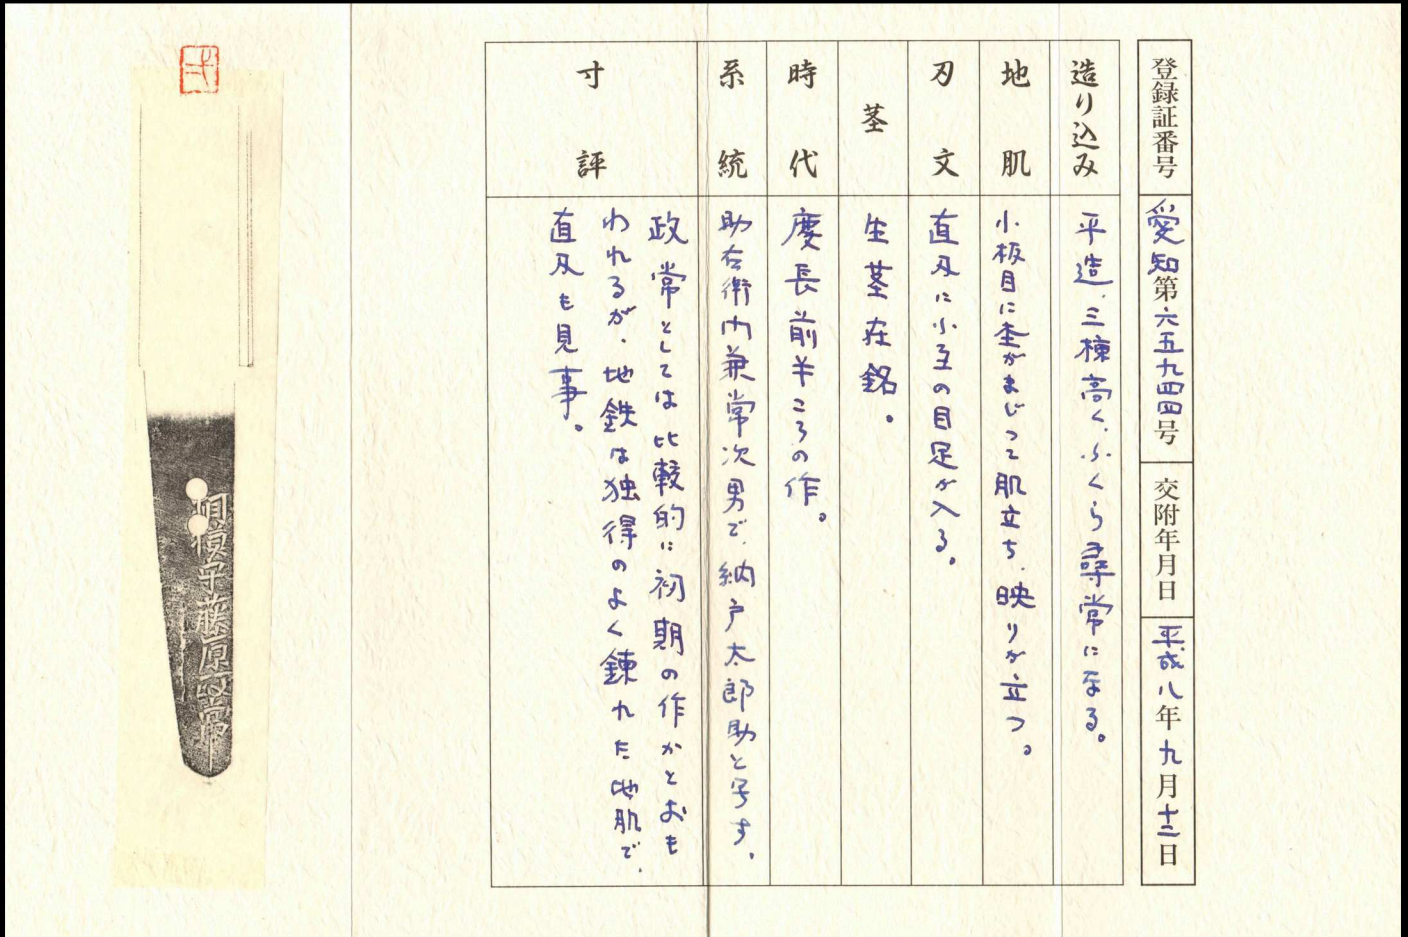 登録証番号
愛知第六五九四四号
交附年月日
平成八年九月十二日
造り込み
平造、三棟高く、ふくら尋常になる。
地肌
小板目に杢がまじって肌立ち、映りが立つ。
刃文
直刃に小互の目足が入る。
茎
生茎在銘。
時代
慶長前半ころの作。
系統
助右衛門兼常次男で、納戸太郎助と号す。
寸評
政常としては比較的に初期の作かとおも
われるが、地鉄は独得のよく錬れた地肌で、
直刃も見事。
相模守藤原政常